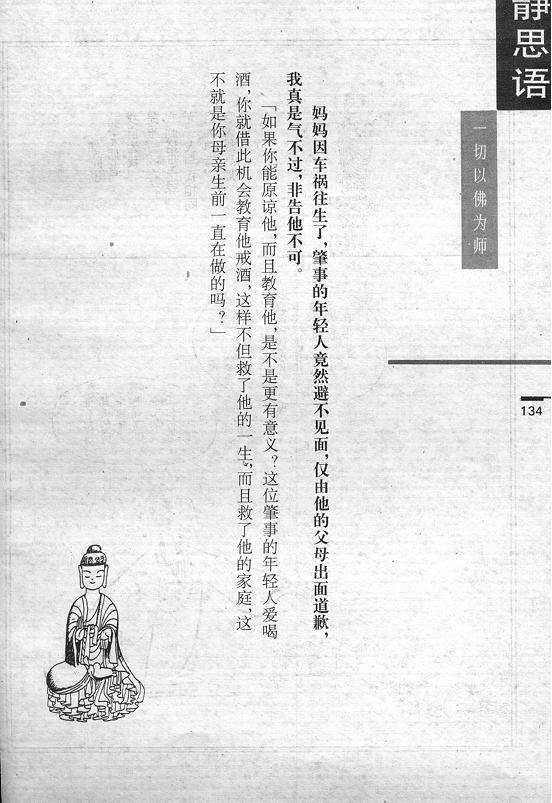 静思语
一切以佛为师
134
妈妈因车祸往生了，肇事的年轻人竟然避不见面，仅由他的父母出面道歉，
我真是气不过，非告他不可。
「如果你能原谅他，而且教育他，是不是更有意义？这位肇事的年轻人爱喝
酒，你就借此机会教育他戒酒，这样不但救了他的一生，而且救了他的家庭，这
不就是你母亲生前一直在做的吗？」